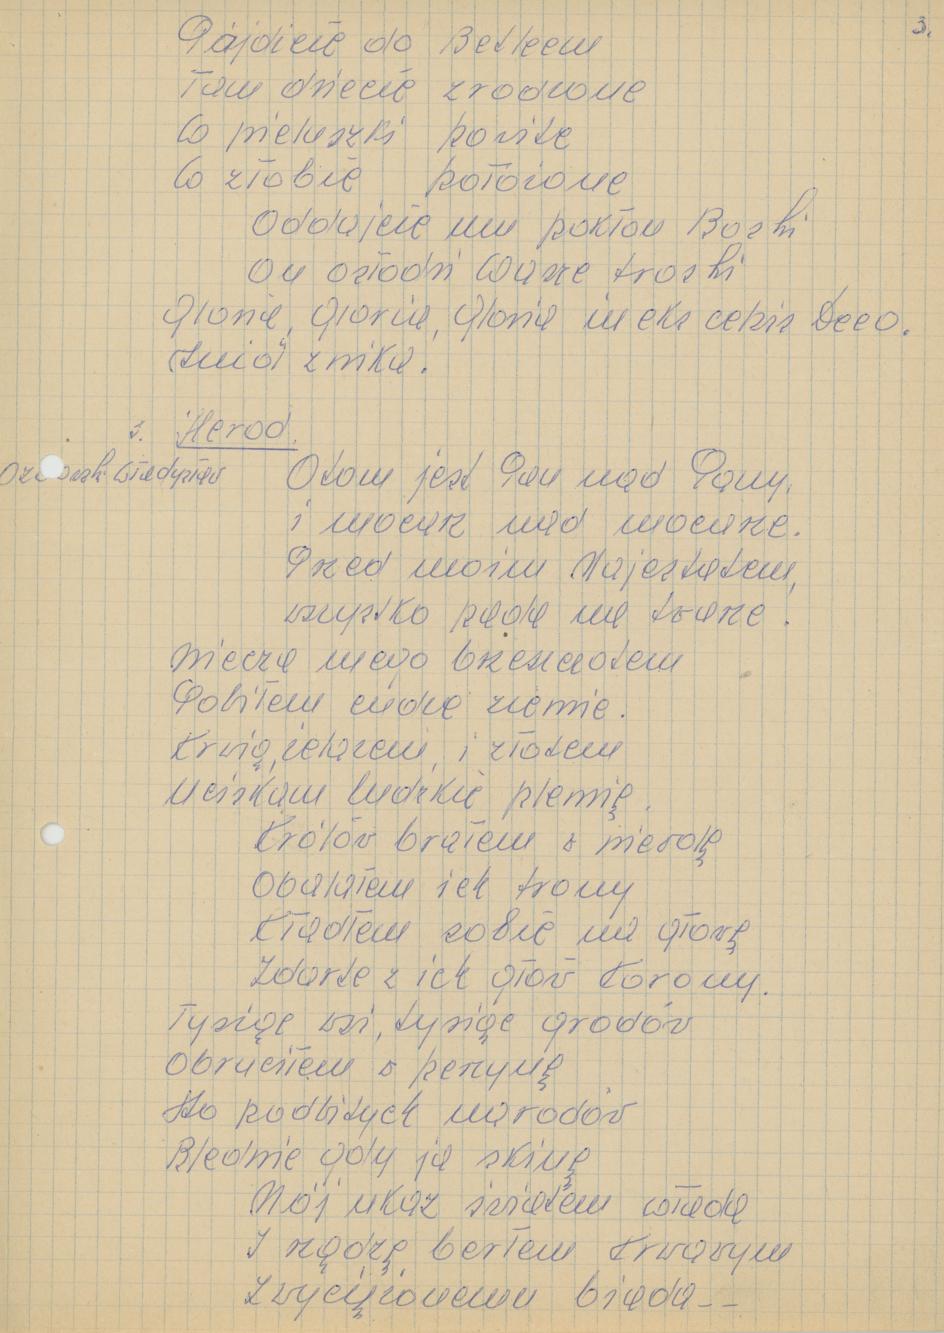 3.
Pójdźcie do Betleem
Tam dziecię zrodzone
W pieluszki powite
W żłobie położone
Oddajcie mu pokłon Boski
On osłodzi Wasze troski
Gloria, Gloria, Gloria in eks celsis Deeo.
Anioł znika.
3. Herod.
Władysław
Otom jest Pan nad Pany,
i mocarz nad mocarze.
Przed moim Majestatem,
wszystko pada na twarze.
Miecza mego brzeszczotem
Pobiłem cudze ziemie.
Krwią, żelazem, i złotem
Uciskam ludzkie plemię.
Królów brałem w niewolę
Obalałem ich trony
Kładłem sobie na głowę
Zdarte z ich głów korony.
Tysiąc wsi, tysiąc grodów
Obruciłem w perzynę
Sto podbitych narodów
Blednie gdy ja skinę
Mój ukaz światem włada
I rządzę berłem krwawym
Zwyciężonemu biada--